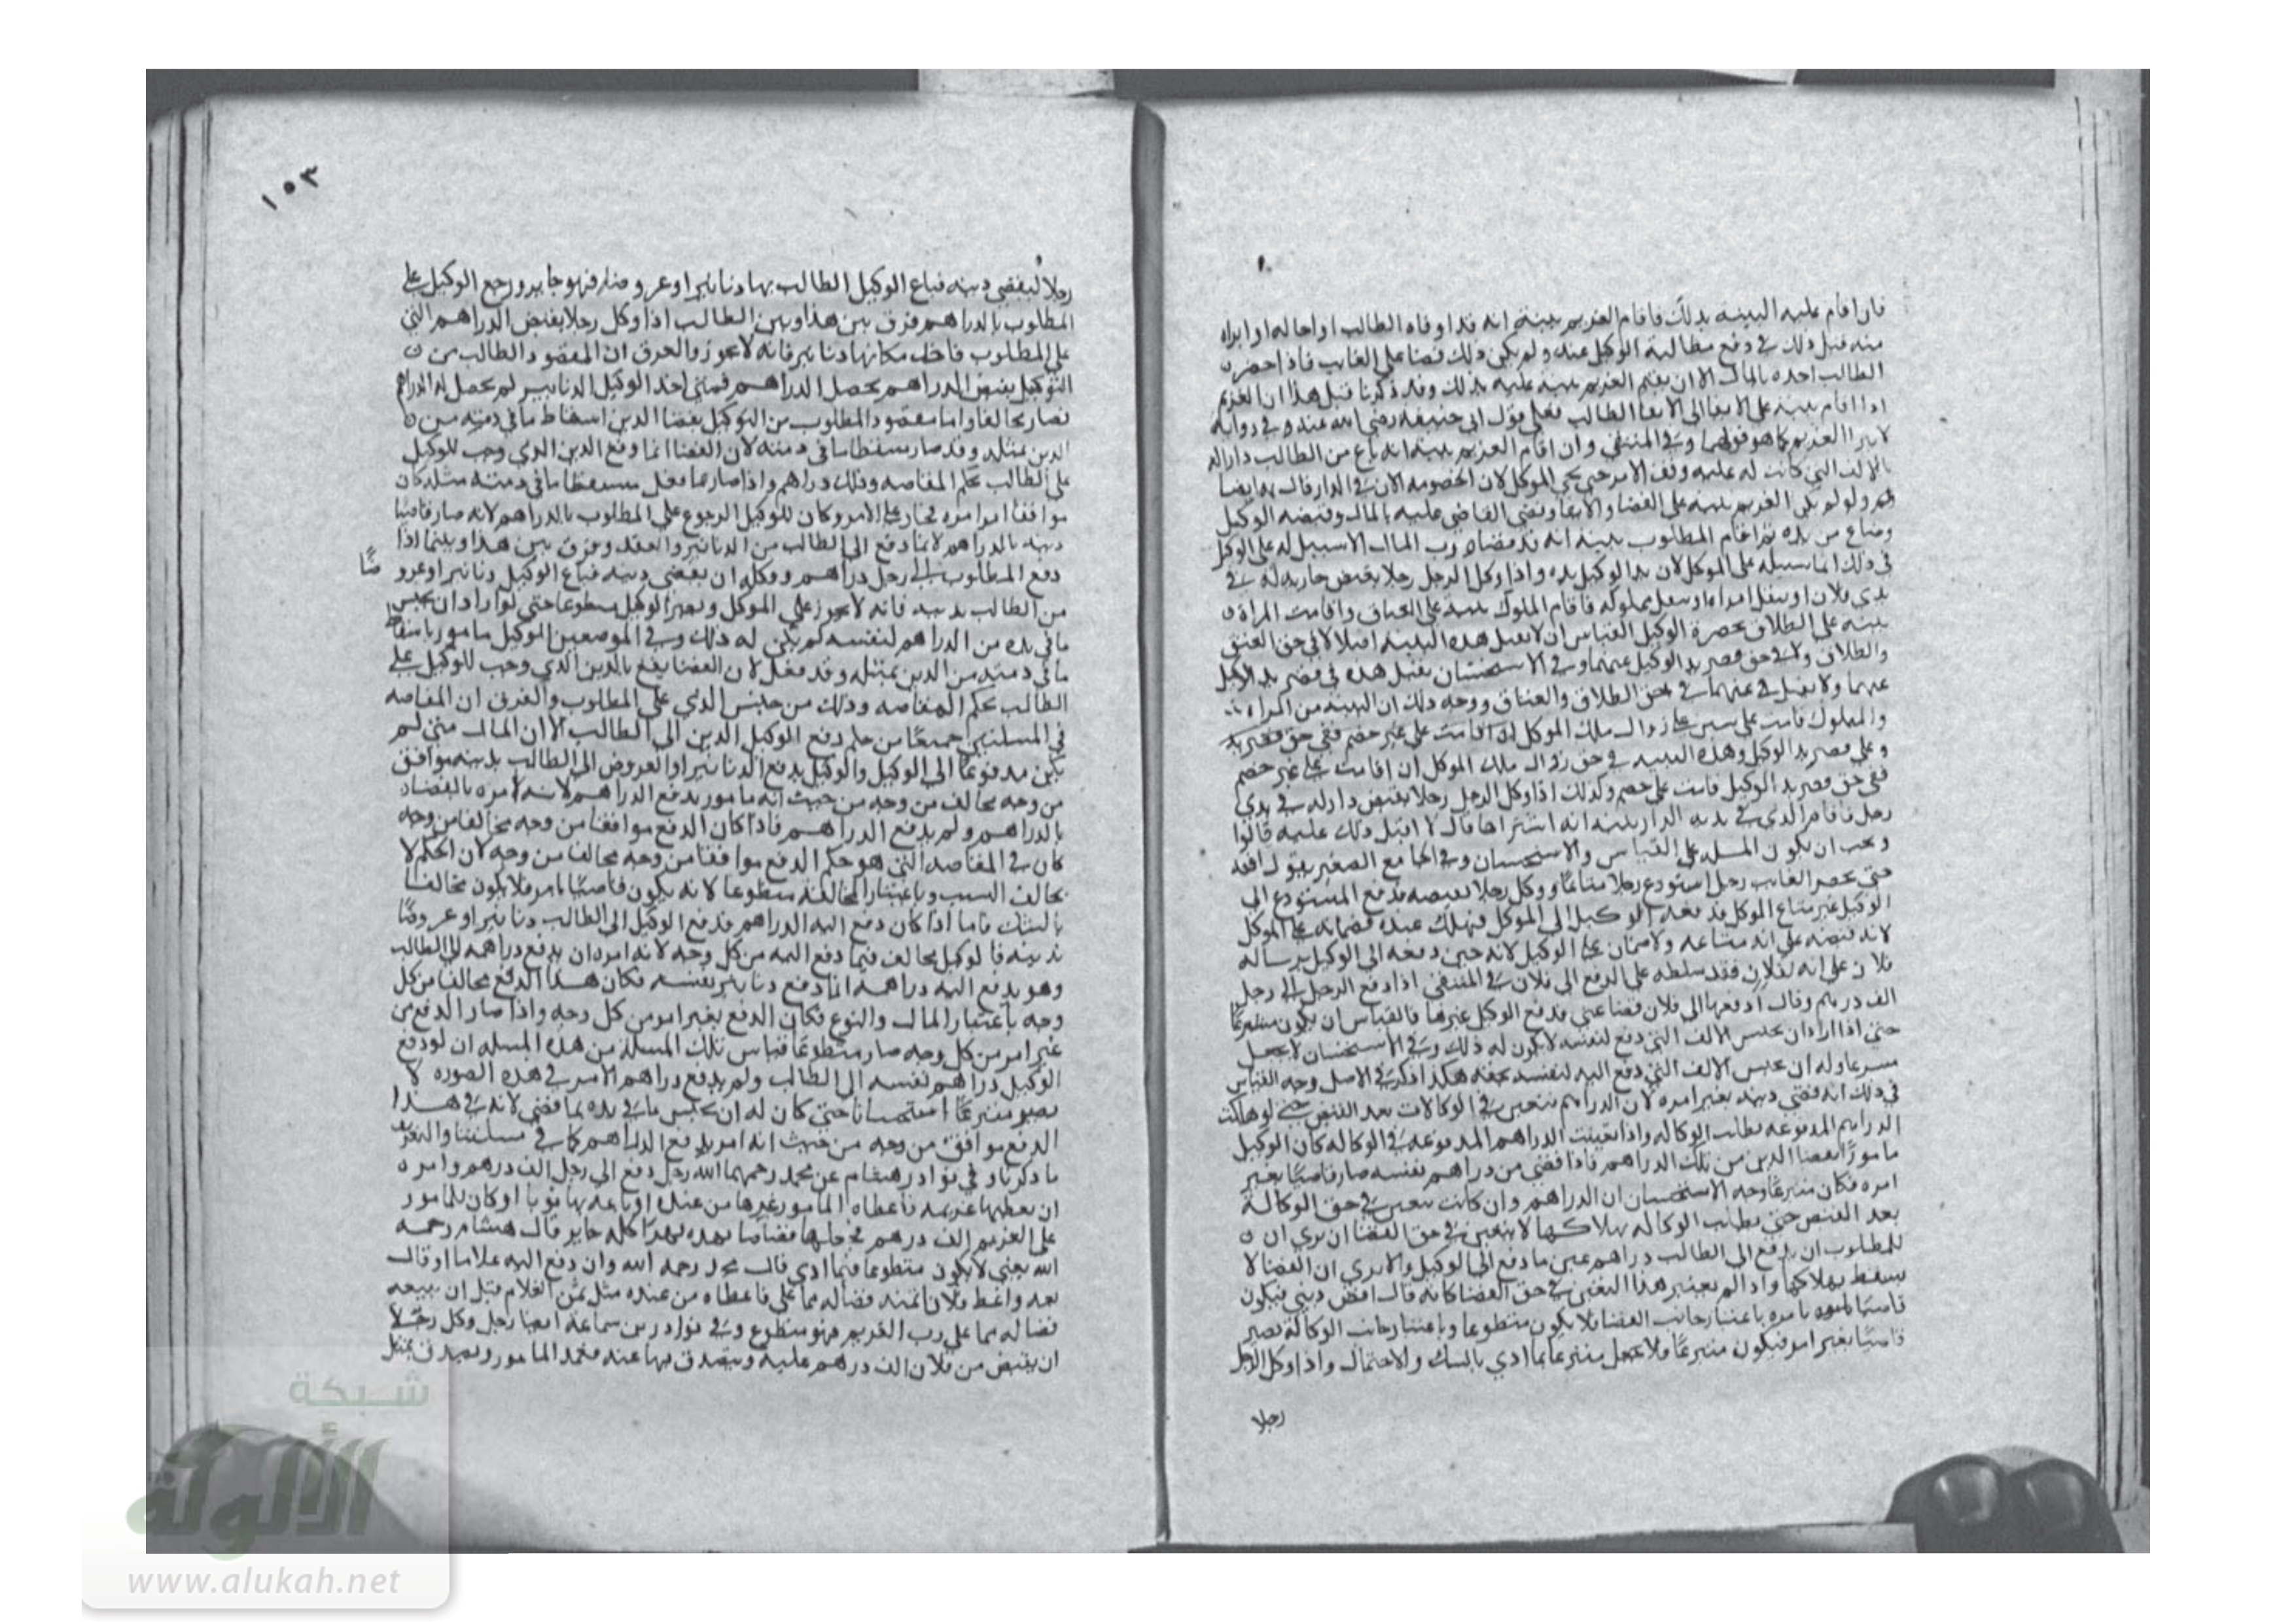 فان اقام عليه البينة بذلك فاقام الغريم بينة انه قد اوفاه الطالب او احاله او ابراه
منه قبل ذلك في دفع مطالبة الوكيل عنه ولم يكن ذلك قضا على الغايب فاذا حضر
الطالب اخذه بالمال الا ان يقيم الغريم بينة عليه بذلك وقد ذكرنا قبل هذا ان الغريم
اذا اقام بينة على الايفا الى الطالب فعلى قول ابي حنيفة رضي الله عنه وفي رواية
لا يبرا الغريم كما هو قولهما وفي المنتقى وان اقام الغريم بينة انه باع من الطالب دارا له
بالالف التي كانت له عليه وقف الامر حتى يجي الموكل لان الخصومة الان في الدار قال به ايضا
ولو لم يكن الغريم بينة على القضا والايفا وقضى القاضي عليه بالمال وقبضه الوكيل
وضاع من يده ثم اقام المطلوب بينة انه قد قضاه رب المال لا سبيل له على الوكيل
في ذلك انما سبيله على الموكل لان يد الوكيل يده واذا وكل الرجل رجلا بقبض جارية له في
يدي فلان او بنقل امراة او بنقل مملوكه فاقام المملوك بينة على العتاق واقامت المراة
بينة على الطلاق بحضرة الوكيل القياس ان لا يقبل هذه البينة اصلا لا في حق العتق
والطلاق ولا في حق قصر يد الوكيل عنهما وفي الاستحسان يقبل هذه في قصر يد الوكيل
عنهما ولا يقبل في حق الطلاق والعتاق ووجه ذلك ان البينة من المراة
والمملوك قامت على سببين على زوال ملك الموكل
وعلى قصر يد الوكيل وهذه البينة في حق زوال ملك الموكل ان اقامت على غير خصم
ففي حق قصر يد الوكيل قامت على خصم وكذلك اذا وكل الرجل رجلا بقبض دار له في يدي
رجل فاقام الذي في يديه الدار بينة انه اشتراها قال لا اقبل ذلك عليه قالوا
ويجب ان يكون المسلة على القياس والاستحسان وفي الجامع الصغير يتوقف
حتى يحضر الغايب رجل استودع رجلا متاعا ووكل رجلا بقبضه فدفع المستودع الى
الوكيل غير متاع الموكل فدفعه الوكيل الى الموكل فهلك عنده فضمانه على الموكل
لانه قبضه على انه متاعه ولا ضمان على الوكيل لانه حين دفعه الى الوكيل برسالة
فلان على انه لفلان فقد سلطه على الدفع الى فلان في المنتقى اذا دفع الرجل الى رجل
الف درهم وقال ادفعها الى فلان قضا عني فدفع الوكيل غيرها فالقياس ان يكون متطوعا
حتى اذا اراد ان يحبس الالف التي دفع لنفسه لا يكون له ذلك وفي الاستحسان لا يجعل
متبرعا وله ان يحبس الالف التي دفع اليه لنفسه بحقه هكذا ذكر في الاصل وجه القياس
في ذلك انه قضى دينه بغير امره لان الدراهم تتعين في الوكالات بعد القبض حتى لو هلكت
الدراهم المدفوعة بطلت الوكالة واذا تعينت الدراهم المدفوعة في الوكالة كان الوكيل
مامورا بقضا الدين من تلك الدراهم فاذا قضى من دراهم نفسه صار قاضيا بغير
امره فكان متبرعا وجه الاستحسان ان الدراهم وان كانت تتعين في حق الوكالة
بعد القبض حتى بطلت الوكالة بهلاكها لا تتعين في حق القضا ان يرى ان
للمطلوب ان يدفع الى الطالب دراهم غير ما دفع الى الوكيل والا يرى ان القضا لا
يسقط بهلاكها واذا لم يعتبر هذا التعين في حق القضا كانه قال اقض ديني فيكون
قاضيا بامره باعتبار جانب القضا فلا يكون متطوعا وباعتبار جانب الوكالة يصير
قاضيا بغير امر فيكون متبرعا فلا يجعل متبرعا بما ادى بالشك والاحتمال واذا وكل الرجل
رجلا
١٥٣
رجلا ليقضي دينه فباع الوكيل الطالب بها دنانير او عروضا فهو جايز ورجع الوكيل على
المطلوب بالدراهم فرق بين هذا وبين الطالب اذا وكل رجلا بقبض الدراهم التي
على المطلوب فاخذ مكانها دنانير فانه لا يجوز والفرق ان المقصود الطالب من
التوكيل بقبض الدراهم تحصيل الدراهم فمتى اخذ الوكيل الدنانير لم يحصل له الدراهم
فصار مخالفا واما مقصود المطلوب من التوكيل بقضا الدين اسقاط ما في ذمته من
الدين بمثله وقد صار مسقطا ما في ذمته لان القضا انما وقع الدين الذي وجب للوكيل
على الطالب بحكم المقاصة وذلك دراهم واذا صار بما فعل مسقطا ما في ذمته بمثله كان
موافقا امر امره فجاز على الامر وكان للوكيل الرجوع على المطلوب بالدراهم لانه صار قاضيا
دينه بالدراهم لا بما دفع الى الطالب من الدنانير والعقد وفرق بين هذا وبينما اذا
دفع المطلوب الى رجل دراهم ووكله ان يقضي دينه فباع الوكيل دنانير او عروضا
من الطالب بدينه فانه لا يجوز على الموكل ويصير الوكيل متطوعا حتى لو اراد ان يحبس
ما في يده من الدراهم لنفسه لم يكن له ذلك وفي الموضعين الوكيل مامور باسقاط
ما في ذمته من الدين بمثله وقد فعل لان القضا يقع بالدين الذي وجب للوكيل على
الطالب بحكم المقاصة وذلك من جنس الذي على المطلوب والفرق ان المقاصة
في المسلتين جميعا من حكم دفع الوكيل الدين الى الطالب الا ان المال متى لم
يكن مدفوعا الى الوكيل والوكيل بدفع الدنانير او العروض الى الطالب بدينه موافق
من وجه مخالف من وجه من حيث انه مامور بدفع الدراهم لانه امره بالقضا
بالدراهم ولم يدفع الدراهم فاذا كان الدفع موافقا من وجه مخالفا من وجه
كان في المقاصة التي هو حكم الدفع موافقا من وجه مخالف من وجه لان الحكم لا
يخالف السبب وباعتبار المخالفة متطوعا لانه يكون قاضيا بامر فلا يكون مخالفا
بالشك فاما اذا كان دفع اليه الدراهم فدفع الوكيل الى الطالب دنانير او عروضا
بدينه فالوكيل مخالف فيما دفع اليه من كل وجه لانه امره ان يدفع دراهمه الى الطالب
وهو بدفع اليه دراهمه انما دفع دنانير نفسه فكان هذا الدفع مخالفا من كل
وجه باعتبار المال والنوع فكان الدفع بغير امر من كل وجه واذا صار الدفع من
غير امر من كل وجه صار متطوعا قياس تلك المسلة من هذه المسلة ان لو دفع
الوكيل دراهم نفسه الى الطالب ولم يدفع دراهم الامر في هذه الصورة لا
يصير متبرعا استحسانا حتى كان له ان يحبس ما في يده بما قضى لانه في هذا
الدفع موافق من وجه من حيث انه امر بدفع الدراهم كما في مسلتنا والتقريب
ما ذكرنا وفي نوادر هشام عن محمد رحمهما الله رجل دفع الى رجل الف درهم وامره
ان يعطيها غريمه فاعطاه المامور غيرها من عنده او باعه بها ثوبا او كان للمامور
على الغريم الف درهم فجعلها قصاصا بهذه فهذا كله جايز قال هشام رحمه
الله يعني لا يكون متطوعا فيما ادى قال محمد رحمه الله وان دفع اليه غلاما او قال
بعه واعط فلانا ثمنه قضا له مما علي فاعطاه من عنده مثل ثمن الغلام قبل ان يبيعه
قضا له مما على رب الغريم فهو متطوع وفي نوادر بن سماعة ايضا رجل وكل رجلا
ان يقبض من فلان الف درهم عليه ويتصدق بها عنه فعمد المامور وتصدق بمثل
شبكة
الألوكة
www.alukah.net